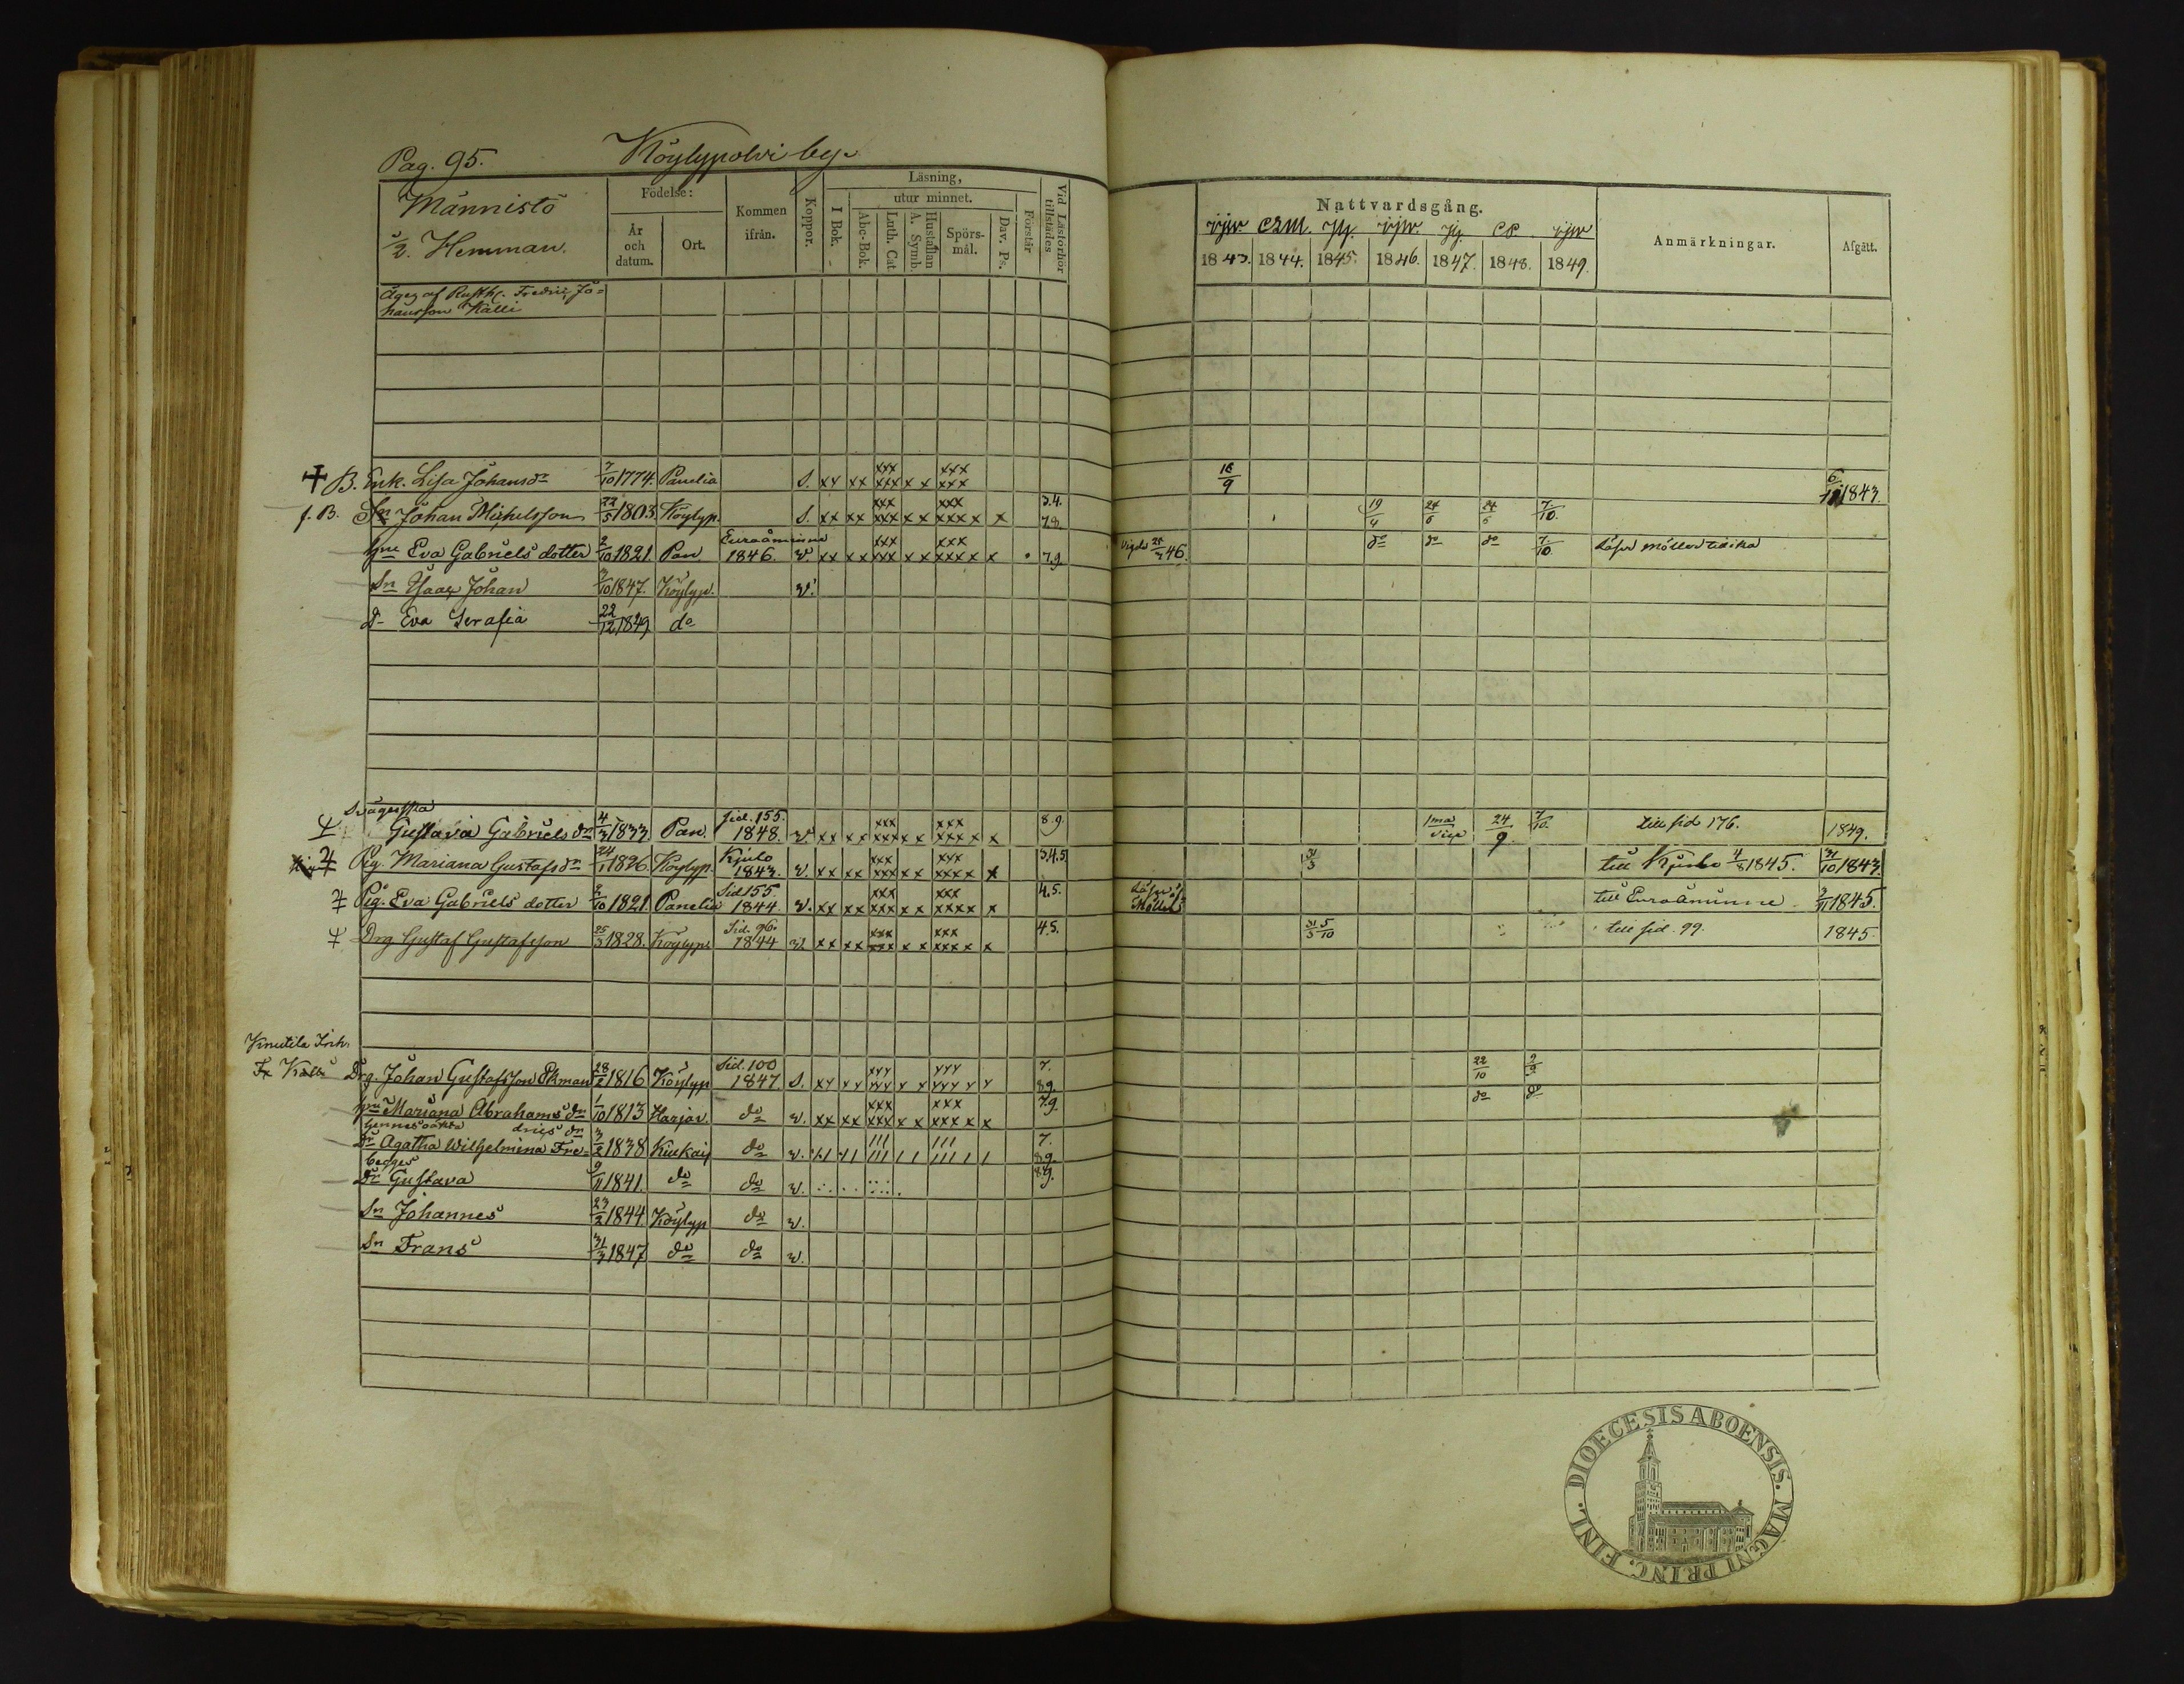 Pag. 95. Köylypolvi by.
Männistö
1/2. Hemman.
Födelse:
År och datum.
Ort.
Kommen ifrån.
Koppor.
Läsning,
I Bok.
utur minnet.
Abc-Bok.
Luth. Cat
Hustaflan
A. Symb.
Spörs-mål.
Dav. Ps.
Förstår
Vid Läsförhör tillstädes
Nattvardsgång.
1843. 1844. 1845. 1846. 1847. 1848. 1849.
Anmärkningar.
Afgått.
äges af Rusth. Fredric Jo=
hansson Källi
B. Enk. Lisa Johansdr 7/10 1774. Panelia S. xx xx xxx xxx x x xxx xxx 18/9 1843.
f. B. Sn Johan Michelsson 22/5 1803. Köylyp. S. xx xx xxx xxx x x xxx xxxx x 3.4. 7.8. 19/4 24/6 24/5 7/10.
Euraåminne
hu Eva Gabriels dotter 2/10 1821. Pan. 1846. v. xx xx xxx xxx x x xxx xxxx x 7.9. Vigde 46. do do do 7/10
Sn Isaac Johan 3/10 1847. Köylyp. v.
Dr Eva Serafia 22/12 1849 do
Svägerska
Gustava Gabriels dr 4/3 1833 Pan. sid. 155. 1848. v. xx xx xxx xxx x x xxx xxxx x 8.9. 1ma 24/9 7/10. till sid 176. 1849.
Pig. Mariana Gustafsdr 1826. Köylyp. Kjulo 1843. v. xx xx xxx xxx x x xxx xxxx x 3.4.5. 31/3 till Kjulo 4/8 1845. 31/10 1843.
Pig. Eva Gabriels dotter 2/10 1821. Panelia Sid 155 1844. v. xx xx xxx xxx x x xxx xxxx x 4.5. till Euraåminne 1845.
Drg Gustaf Gustafsson 25/3 1828. Köylyp. Sid. 96. 1844 v. xx xx xxx xxx x x xxx xxxx x 4.5. 31/3 5/10 till sid. 99. 1845
Knutila Inh.
Fr Källi Drg. Johan Gustafsson Ekman 28/2 1816 Köylyp Sid. 100 1847 S. xx xx xxx xxx x x xxx xxxx x 7. 8.9. 22/10 2/9
hu Mariana Abrahams dr 1/10 1813 Harjav. do v. xx xx xxx xxx x x xxx xxxx x 7.9. do do
hennes oäkta drics dr
Dr Agatha Wilhelmina Fre= 3/2 1838 Kiukais do v. 7. 8.9.
begges
Dr Gustava 9/11 1841. do do v. 8.9.
Sn Johannes 23/2 1844. Köylyp do v.
Sn Frans 31/3 1847 do do v.
DIOECESIS ABOENSIS. MAGNI PRINC. FINL.